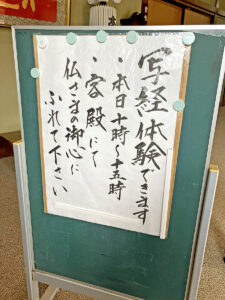 写経体験できます
・本日十時～十五時
・客殿にて
仏さまの御心に
ふれて下さい